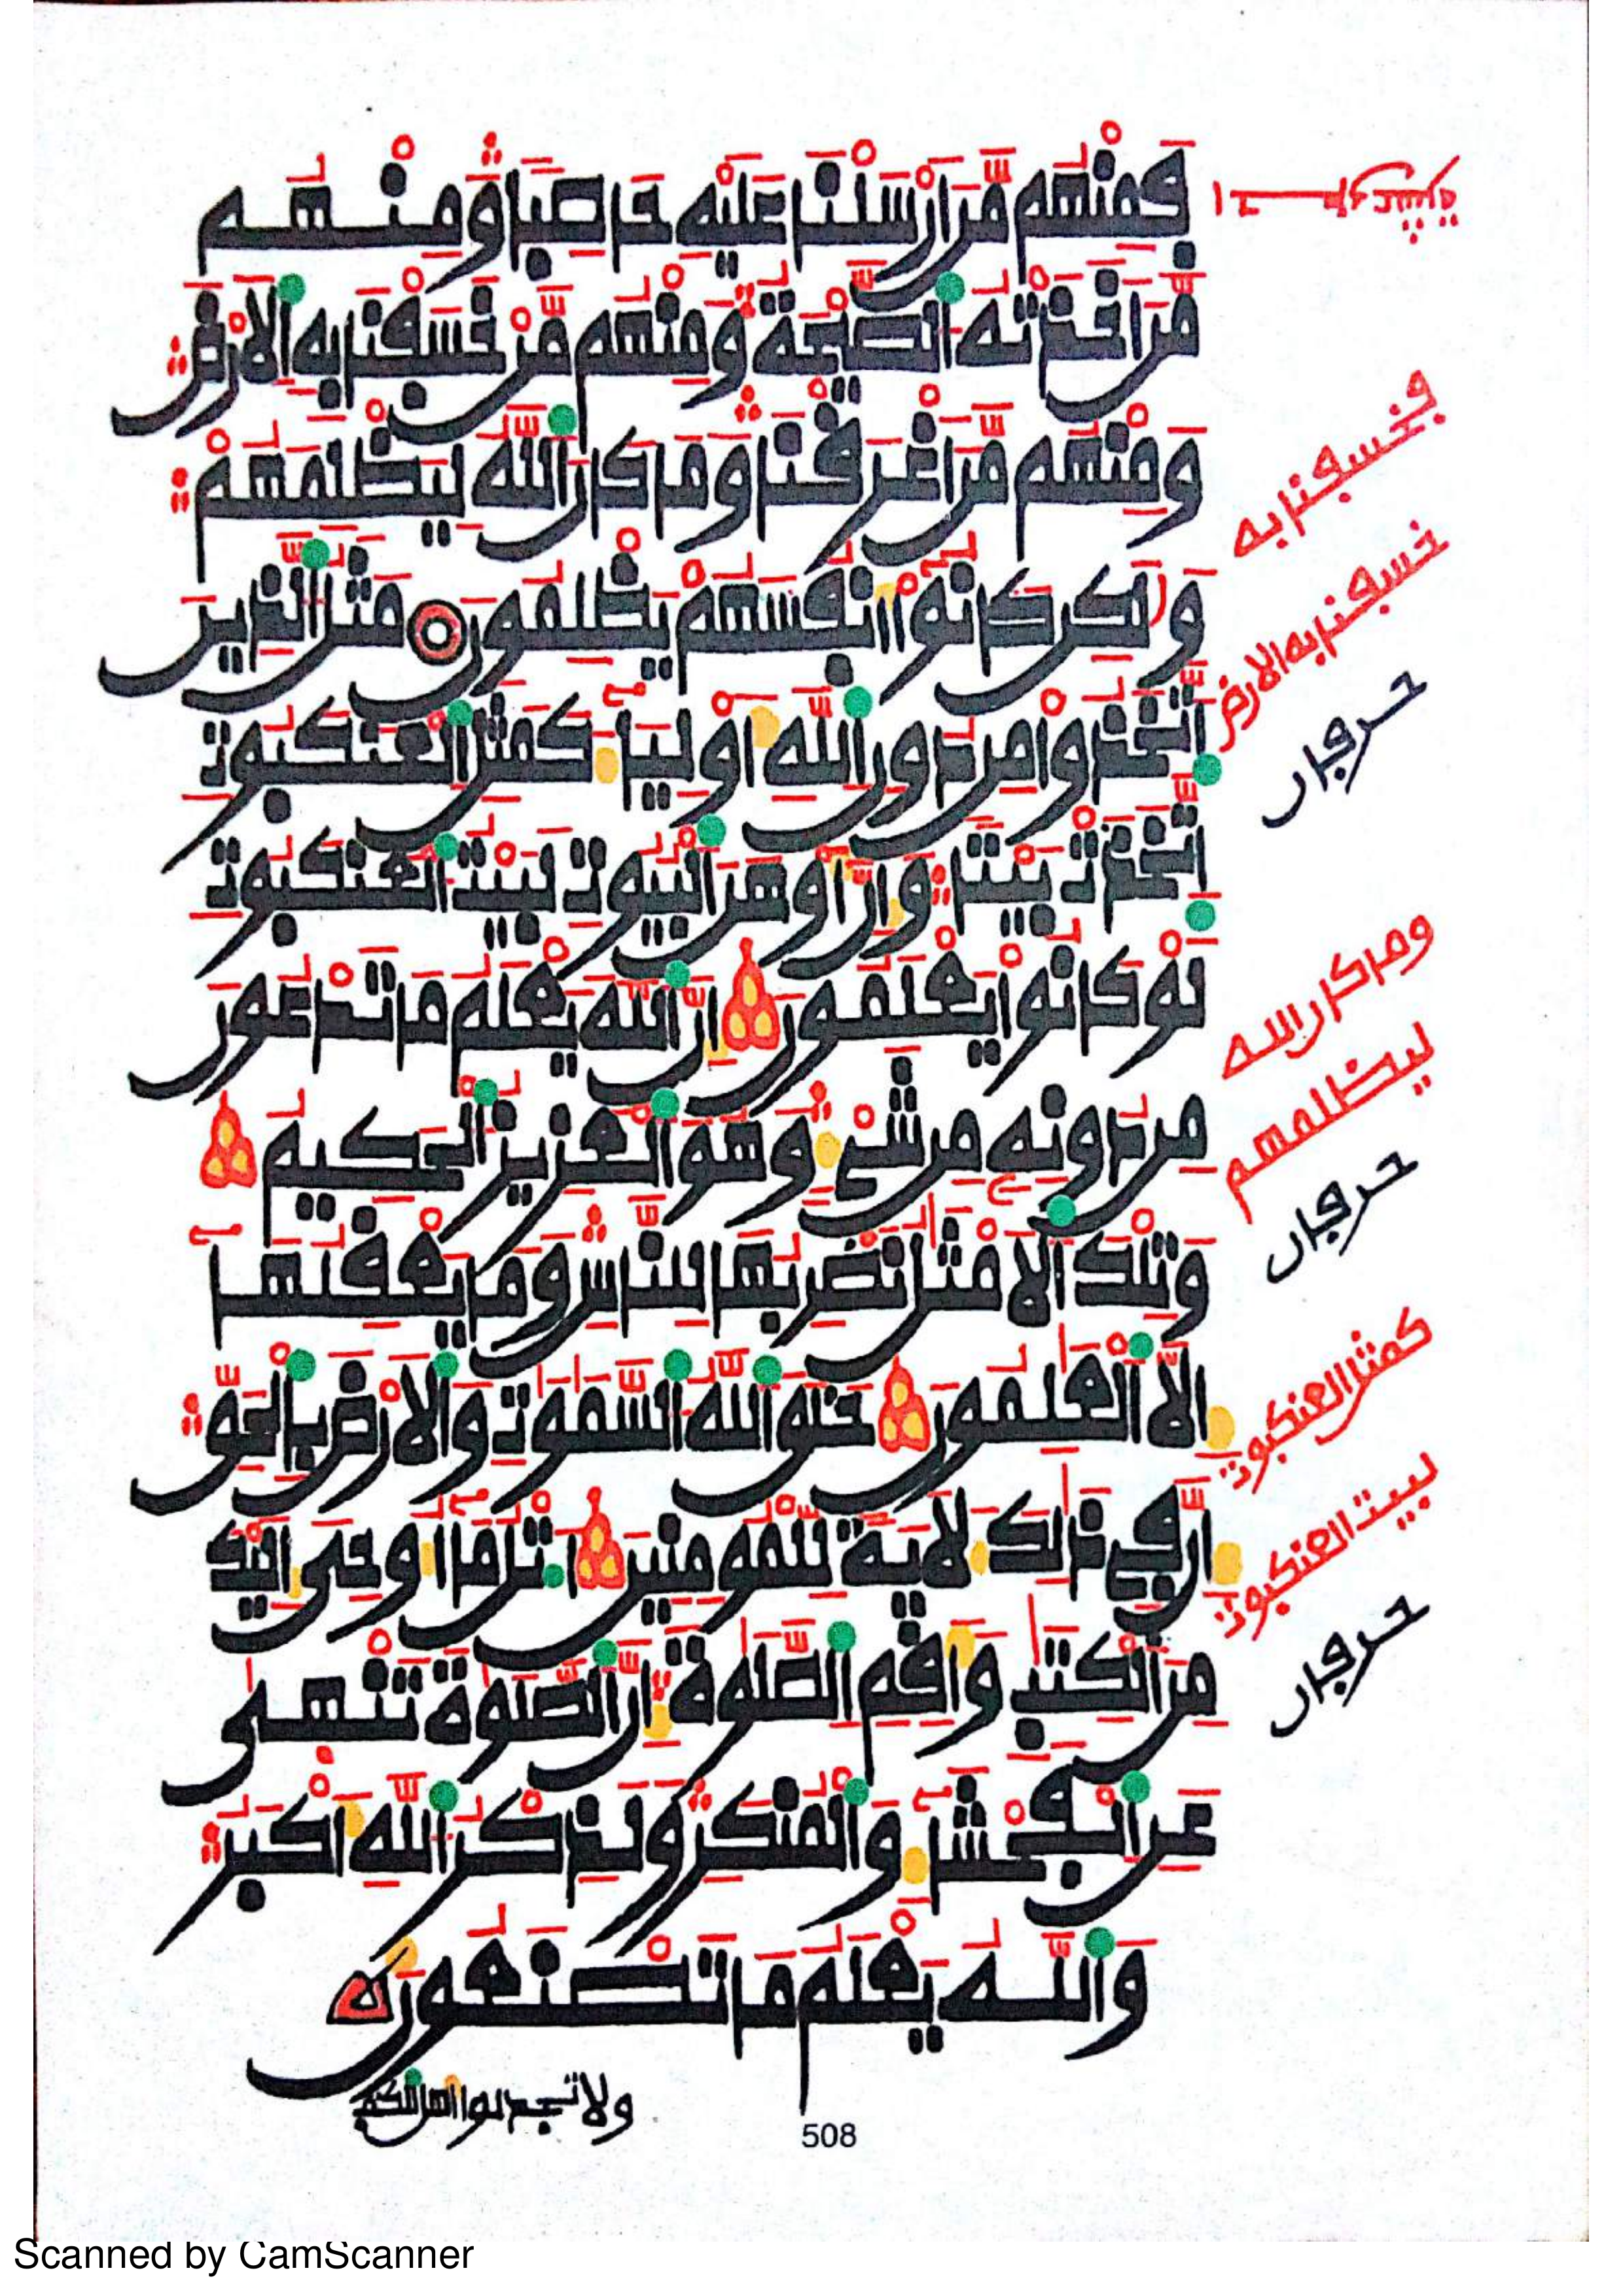 فمنهم من ارسلنا عليه حاصبا ومنهم
من اخذته الصيحة ومنهم من خسفنا به الارض
ومنهم من اغرقنا وما كان الله ليظلمهم
ولكن كانوا انفسهم يظلمون مثل الذين
اتخذوا من دون الله اولياء كمثل العنكبوت
اتخذت بيتا وان اوهن البيوت لبيت العنكبوت
لو كانوا يعلمون ان الله يعلم ما تدعون
من دونه من شيء وهو العزيز الحكيم
وتلك الامثل نضربها للناس وما يعقلها
الا العلمون خلق الله السموت والارض بالحق
ان في ذالك لاية للمومنين اتل ما اوحي اليك
من الكتب واقم الصلوة ان الصلوة تنهى
عن الفحشاء والمنكر ولذكر الله اكبر
والله يعلم ما تصنعون
ولا تجدلوا اهل الكتب
فخسفنا به
خسفنا به الارض
حرفان
وما كان الله
ليظلمهم
حرفان
كمثل العنكبوت
لبيت العنكبوت
حرفان
508
Scanned by CamScanner